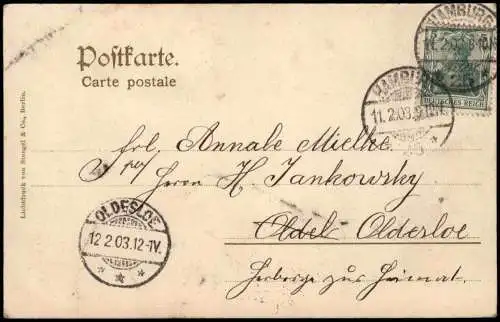 Postkarte.
Carte postale
HAMBURG
11.2.03.
DEUTSCHES REICH
HAMBURG
11.2.03.9
Frl. Annale Mielke
p. Adr. Herrn H. Jankowsky
Oldel Oldesloe
Herberge zur Heimat.
OLDESLOE
12.2.03.12-1V.
Lichtdruck von Stengel & Co., Berlin.